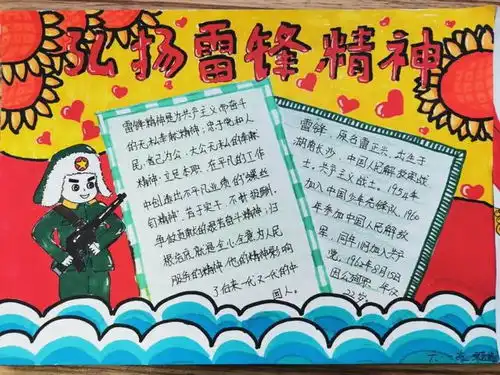 弘扬雷锋精神
雷锋精神是为共产主义而奋斗
的无私奉献精神；忠于党和人
民，舍己为公，大公无私的奉献
精神；立足本职、在平凡的工作
中创造出不平凡业绩的“螺丝
钉精神”，苦于实干，不计报酬，
争做贡献的艰苦奋斗精神，归
根结底就是全心全意为人民
服务的精神，他的精神影响
了后来一代又一代的中
国人。
雷锋，原名雷正兴，出生于
湖南长沙，中国人民解放军战
士，共产主义战士。1954年
加入中国少年先锋队，1960
年参加中国人民解放
军，同年11月加入共产
党，1962年8月15日
因公殉职，年仅
22岁。
六